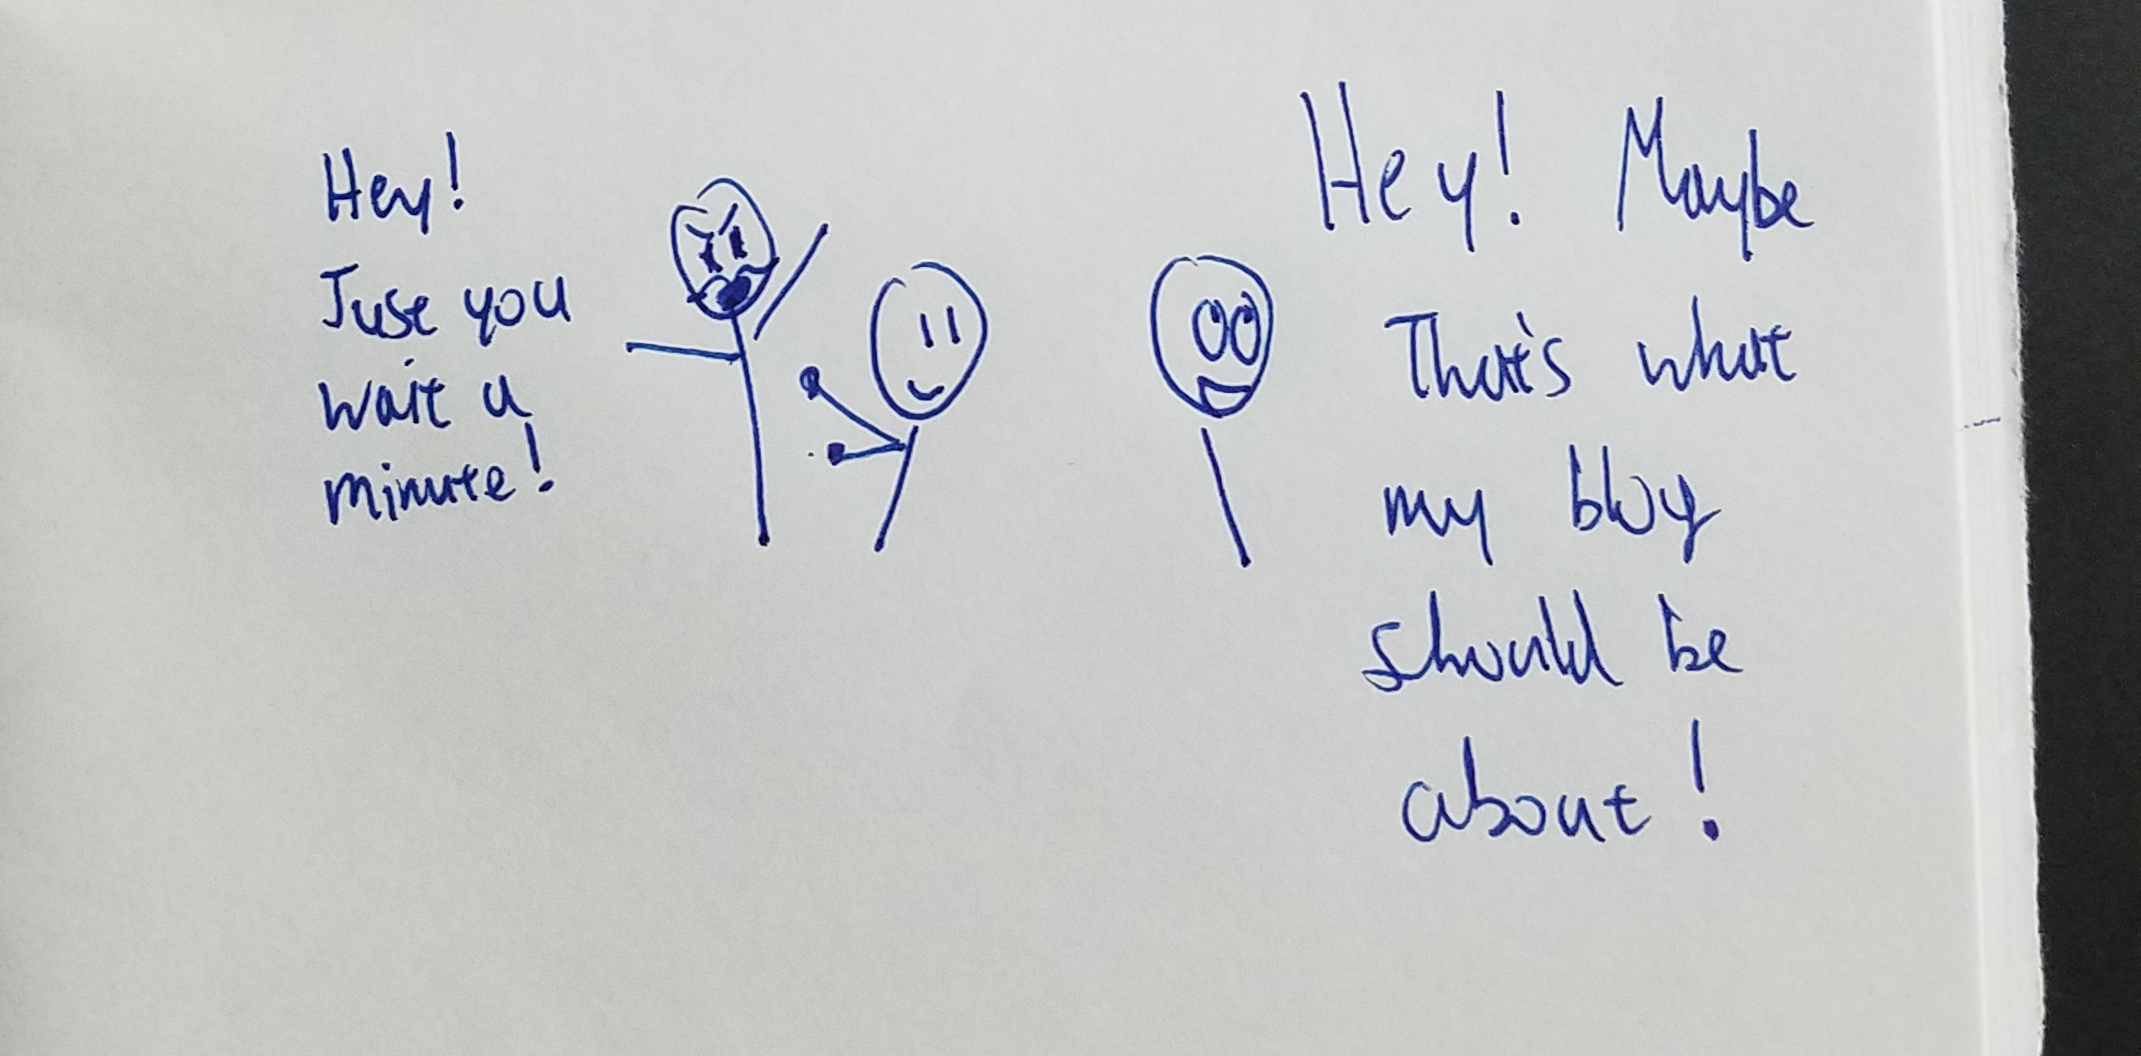 Hey!
Just you
wait a
minute!
Hey! Maybe
That's what
my blog
should be
about!